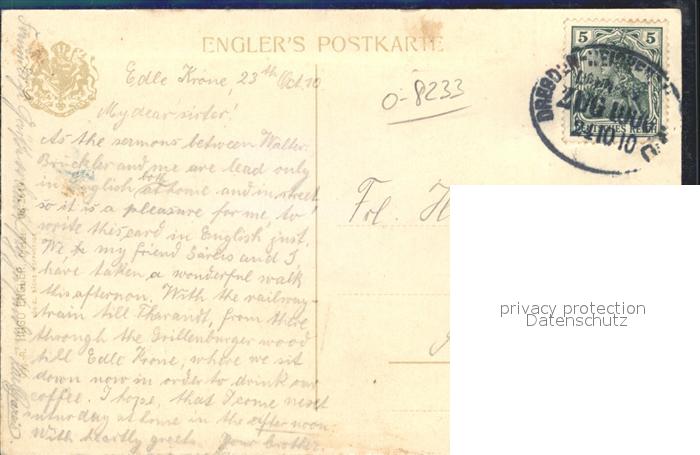 ENGLER'S POSTKARTE
Edle Krone, 23th Oct. 10
My dear sister!
As the sermons between Walter
Brückler and me are lead only
in English both at home and in street
so it is a pleasure for me, to
write this card in English just.
We to my friend Sárkis and I,
have taken a wonderful walk
this afternoon. With the railway-
train till Tharandt, from there
through the Grillenburger wood
till Edle Krone, where we sit
down now in order to drink our
coffee. I hope, that I come next
saturday at home in the afternoon.
With heartly greets. Your brother.
HUGO ENGLER
0-8233
Frl. H
5
DEUTSCHES REICH
DRESDEN
ZUG
24 10 10
privacy protection
Datenschutz